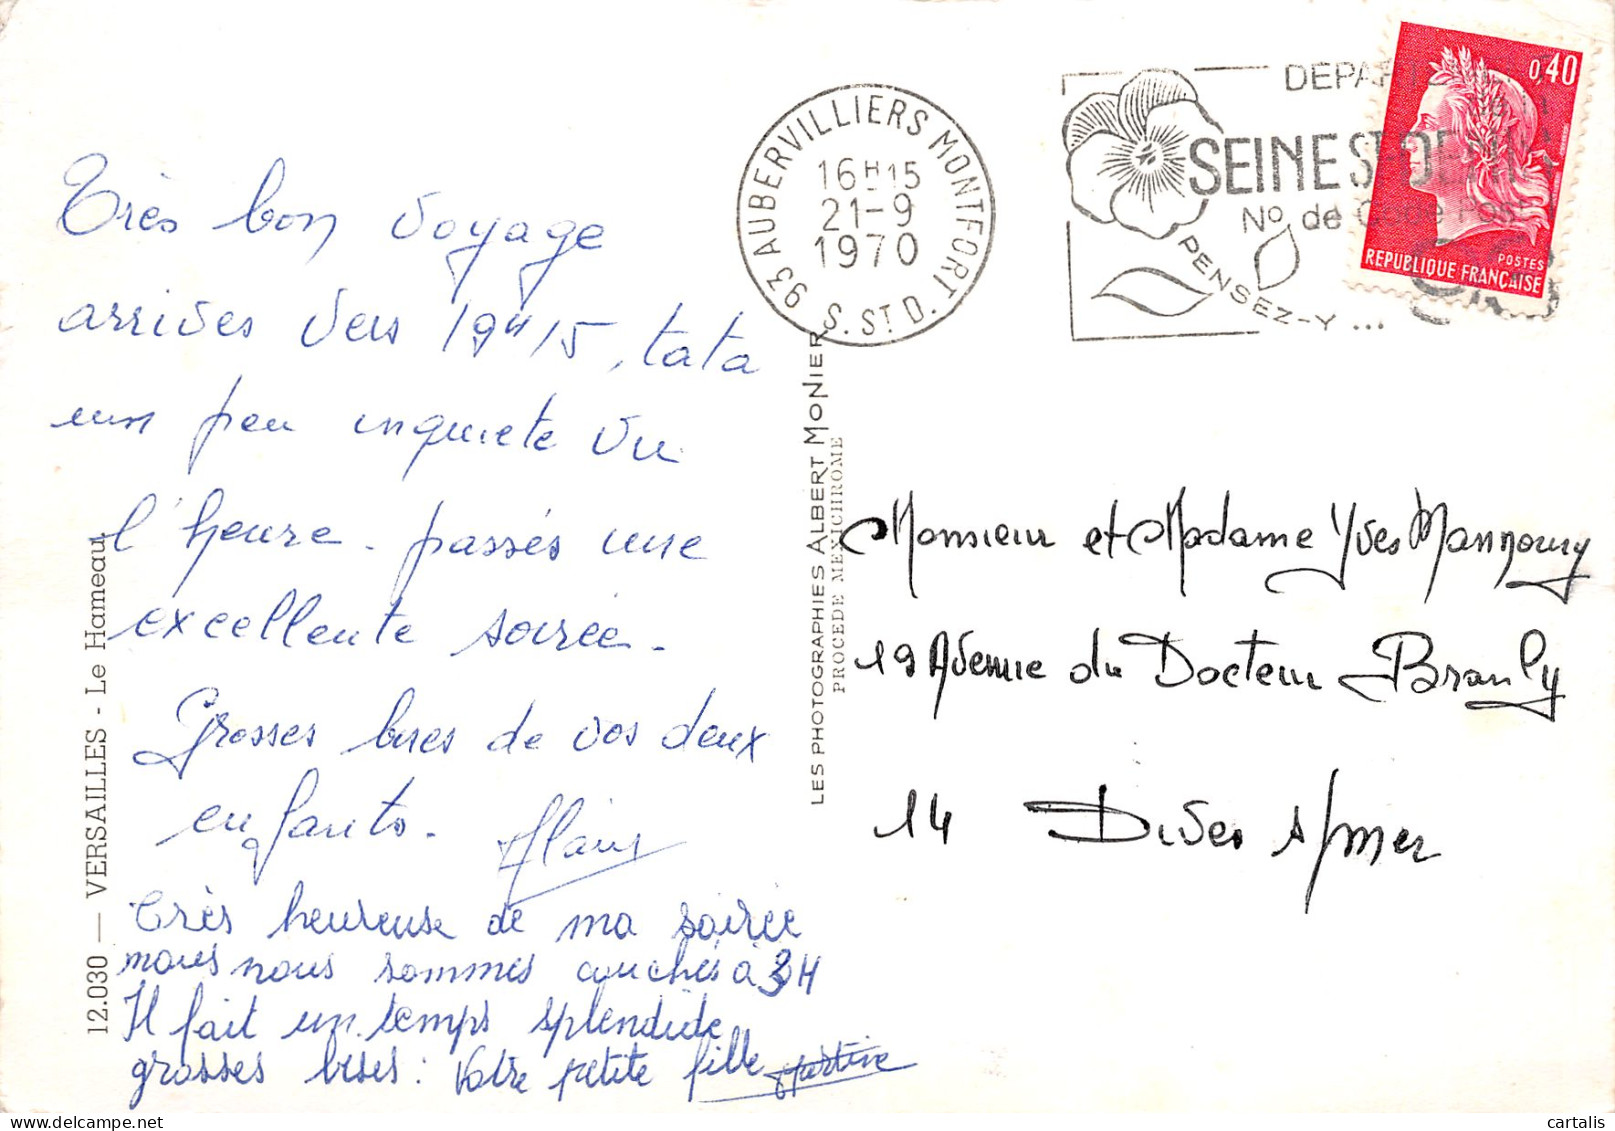 Très bon voyage
arrivés vers 19H15, tata
un peu inquiète vu
l'heure - passés une
excellente soirée -
Grosses bises de vos deux
enfants. Alain
Très heureuse de ma soirée
mais nous sommes couchés à 3H
Il fait un temps splendide
grosses bises : Votre petite fille Martine
12.030 — VERSAILLES - Le Hameau
LES PHOTOGRAPHIES ALBERT MONIER
PROCEDE MEXICHROME
93 AUBERVILLIERS MONTFORT
16H15
21-9
1970
S. ST D.
SEINE ST-DENIS
N° de Code Post
PENSEZ-Y ...
0,40
POSTES
REPUBLIQUE FRANÇAISE
Monsieur et Madame Yves Mannoury
19 Avenue du Docteur Branly
14 Dives s/mer
cartalis